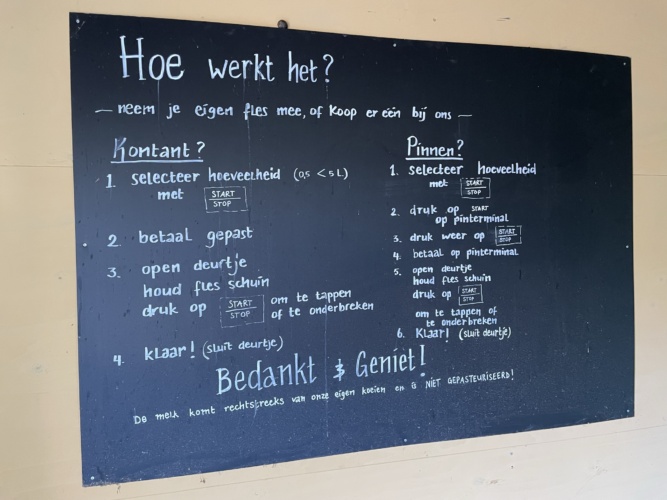 Hoe werkt het?
— neem je eigen fles mee, of koop er één bij ons —
Kontant?
1. selecteer hoeveelheid (0,5 < 5 L)
met START
STOP
2. betaal gepast
3. open deurtje
houd fles schuin
druk op START
STOP om te tappen
of te onderbreken
4. klaar! (sluit deurtje)
Pinnen?
1. selecteer hoeveelheid
met START
STOP
2. druk op START
op pinterminal
3. druk weer op START
STOP
4. betaal op pinterminal
5. open deurtje
houd fles schuin
druk op START
STOP
om te tappen of
te onderbreken
6. Klaar! (sluit deurtje)
Bedankt & Geniet!
De melk komt rechtstreeks van onze eigen koeien en is NIET GEPASTEURISEERD!